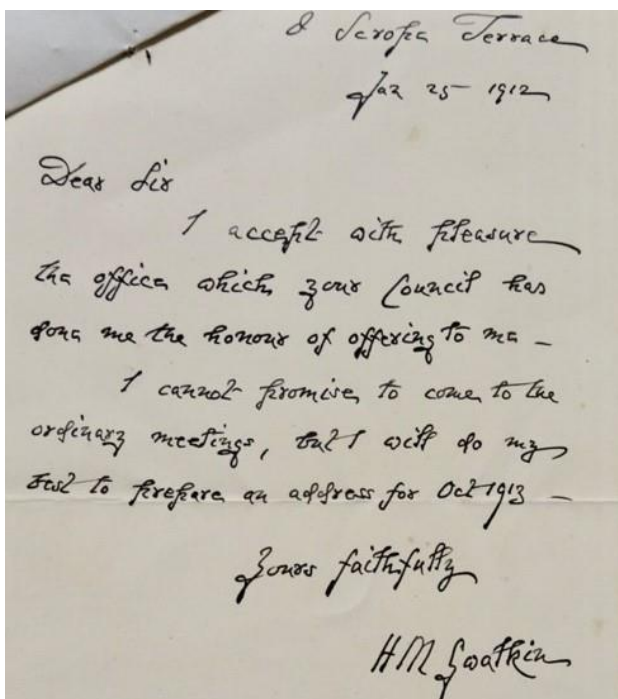 8 Scrope Terrace
Jan 25 1912
Dear Sir
I accept with pleasure
the office which your Council has
done me the honour of offering to me –
I cannot promise to come to the
ordinary meetings, but I will do my
best to prepare an address for Oct 1913 –
Yours faithfully
H M Gwatkin